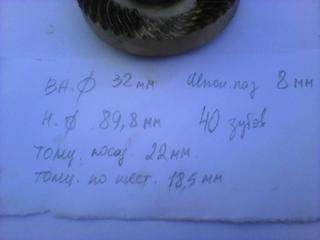 вн.ф 32 мм Шпон.паз 8 мм
н.ф 89,8 мм 40 зубов
толщ. посад 22мм
толщ. по шест. 18,5 мм